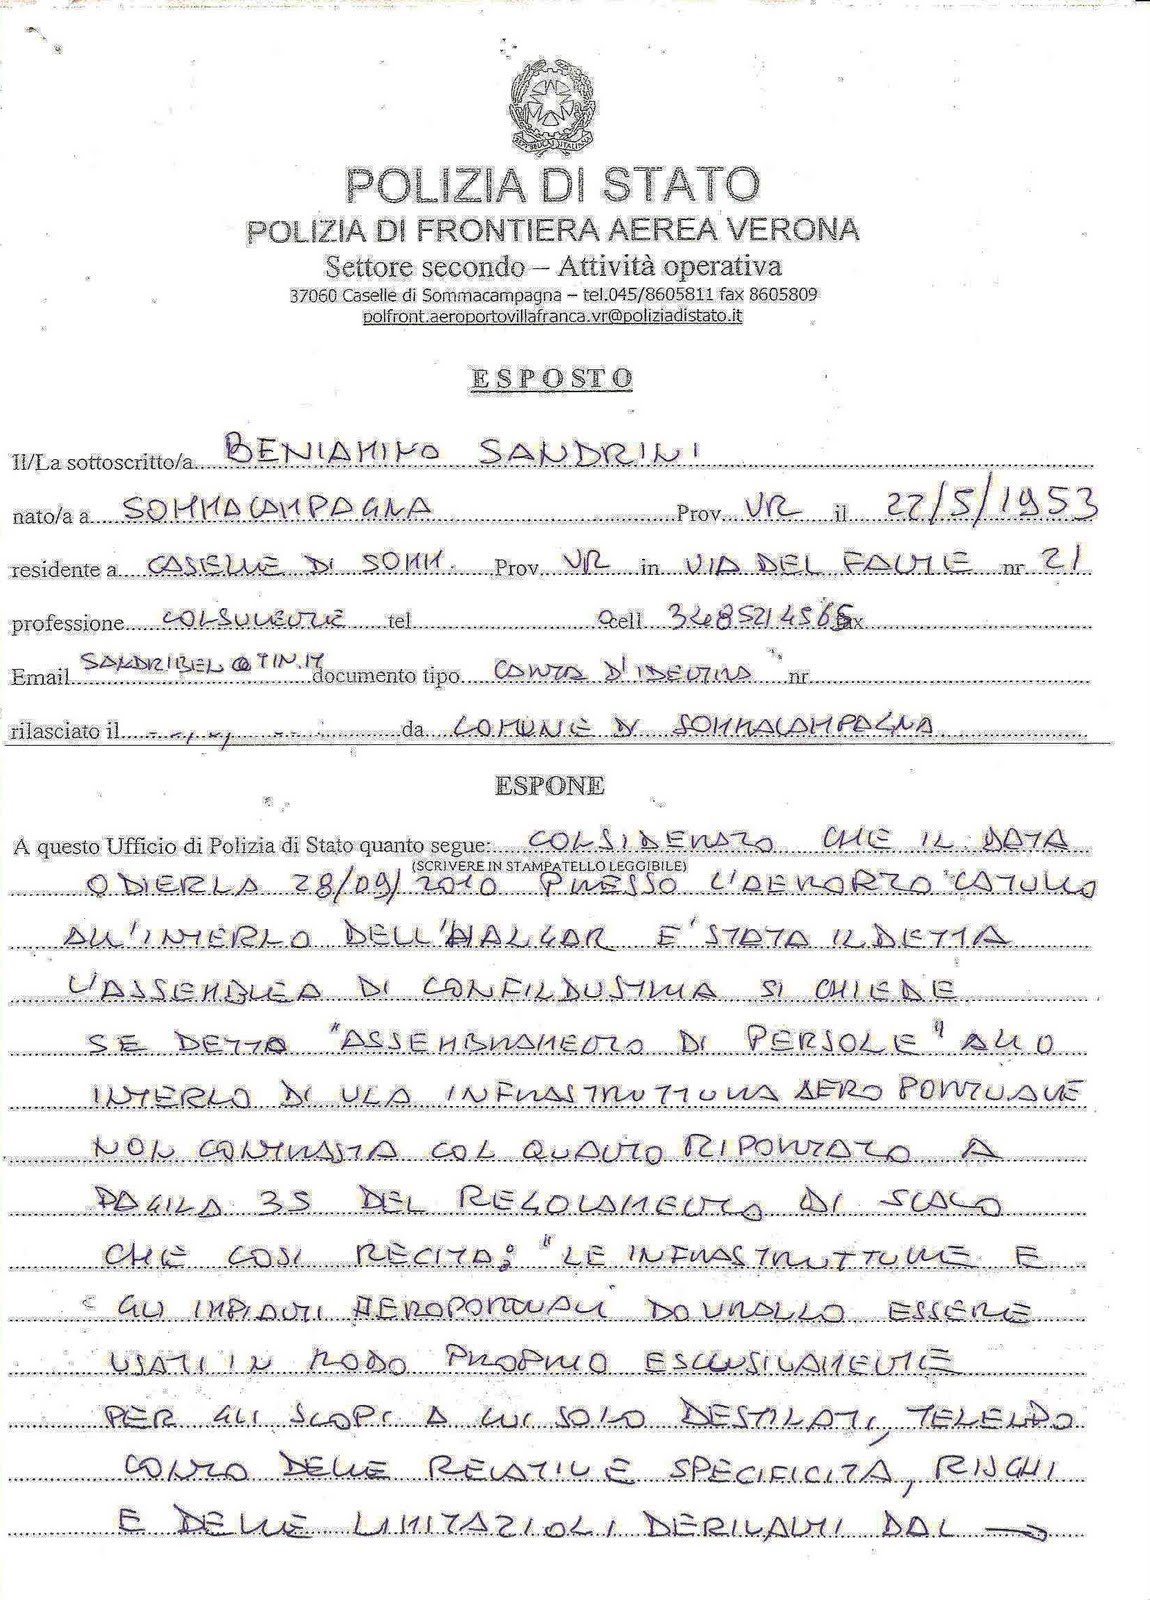 REPUBBLICA ITALIANA
POLIZIA DI STATO
POLIZIA DI FRONTIERA AEREA VERONA
Settore secondo – Attività operativa
37060 Caselle di Sommacampagna – tel.045/8605811 fax 8605809
polfront.aeroportovillafranca.vr@poliziadistato.it
ESPOSTO
Il/La sottoscritto/a BENIAMINO SANDRINI
nato/a a SOMMACAMPAGNA Prov VR il 22/5/1953
residente a CASELLE DI SOMM. Prov VR in VIA DEL FANTE nr 21
professione CONSULENTE tel cell 3485214565 fax
Email SANDRIBEN@TIN.IT documento tipo CARTA D'IDENTITA nr
rilasciato il da COMUNE DI SOMMACAMPAGNA
ESPONE
A questo Ufficio di Polizia di Stato quanto segue: CONSIDERATO CHE IN DATA
(SCRIVERE IN STAMPATELLO LEGGIBILE)
ODIERNA 28/09/2010 PRESSO L'AEROPORTO "CATULLO
ALL'INTERNO DELL'HANGAR E' STATA INDETTA
L'ASSEMBLEA DI CONFINDUSTRIA SI CHIEDE
SE DETTO "ASSEMBRAMENTO DI PERSONE" ALLO
INTERNO DI UNA INFRASTRUTTURA AEROPORTUALE
NON CONTRASTA CON QUANTO RIPORTATO A
PAGINA 35 DEL REGOLAMENTO DI SCALO
CHE COSI RECITA: "LE INFRASTRUTTURE E
GLI IMPIANTI AEROPORTUALI DOVRANNO ESSERE
USATI IN MODO PROPRIO ESCLUSIVAMENTE
PER GLI SCOPI A CUI SONO DESTINATI, TENENDO
CONTO DELLE RELATIVE SPECIFICITA, RISCHI
E DELLE LIMITAZIONI DERIVANTI DAL →